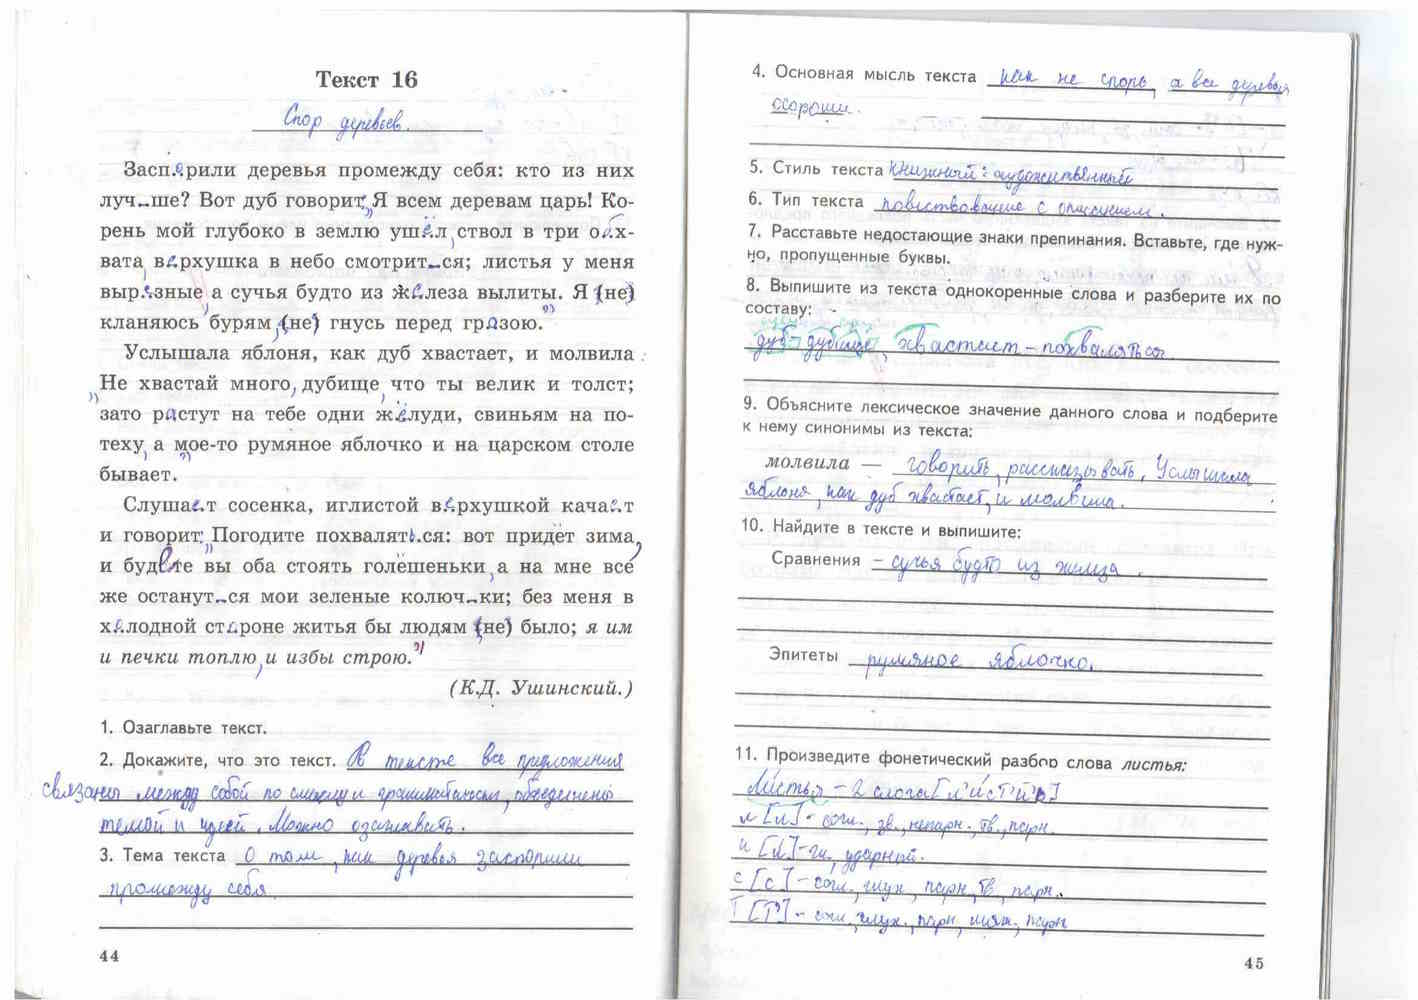 Текст 16
Спор деревьев.
Засп.орили деревья промежду себя: кто из них
луч–ше? Вот дуб говорит: „Я всем деревам царь! Ко-
рень мой глубоко в землю ушёл, ствол в три обх-
вата, верхушка в небо смотрит–ся; листья у меня
вырезные, а сучья будто из железа вылиты. Я (не)
кланяюсь бурям, (не) гнусь перед грозою."
Услышала яблоня, как дуб хвастает, и молвила:
„Не хвастай много, дубище, что ты велик и толст;
зато растут на тебе одни жёлуди, свиньям на по-
теху, а мое-то румяное яблочко и на царском столе
бывает."
Слушает сосенка, иглистой верхушкой качает
и говорит: „Погодите похвалять.ся: вот придёт зима,
и будете вы оба стоять голёшеньки, а на мне всё
же останут–ся мои зеленые колюч–ки; без меня в
холодной стороне житья бы людям (не) было; я им
и печки топлю, и избы строю."
(К.Д. Ушинский.)
1. Озаглавьте текст.
2. Докажите, что это текст. В тексте все предложения
связаны между собой по смыслу и грамматически, объединены
темой и идеей. Можно озаглавить.
3. Тема текста О том, как деревья заспорили
промежду себя
44
4. Основная мысль текста как не спорь, а все деревья
хороши.
5. Стиль текста Книжный: художественный
6. Тип текста повествование с описанием.
7. Расставьте недостающие знаки препинания. Вставьте, где нуж-
но, пропущенные буквы.
8. Выпишите из текста однокоренные слова и разберите их по
составу:
дуб - дубище, хвастает – похваляться
9. Объясните лексическое значение данного слова и подберите
к нему синонимы из текста:
молвила — говорить, рассказывать, Услышала
яблоня, как дуб хвастает, и молвила.
10. Найдите в тексте и выпишите:
Сравнения – сучья будто из железа.
Эпитеты румяное яблочко.
11. Произведите фонетический разбор слова листья:
Листья – 2 слога
л [л] - согл., зв., непарн., тв., парн.
и [и] - гл., ударный.
с [с] - согл., глух., парн., тв., парн.
т [т'] - согл., глух., парн., мягк., парн
45